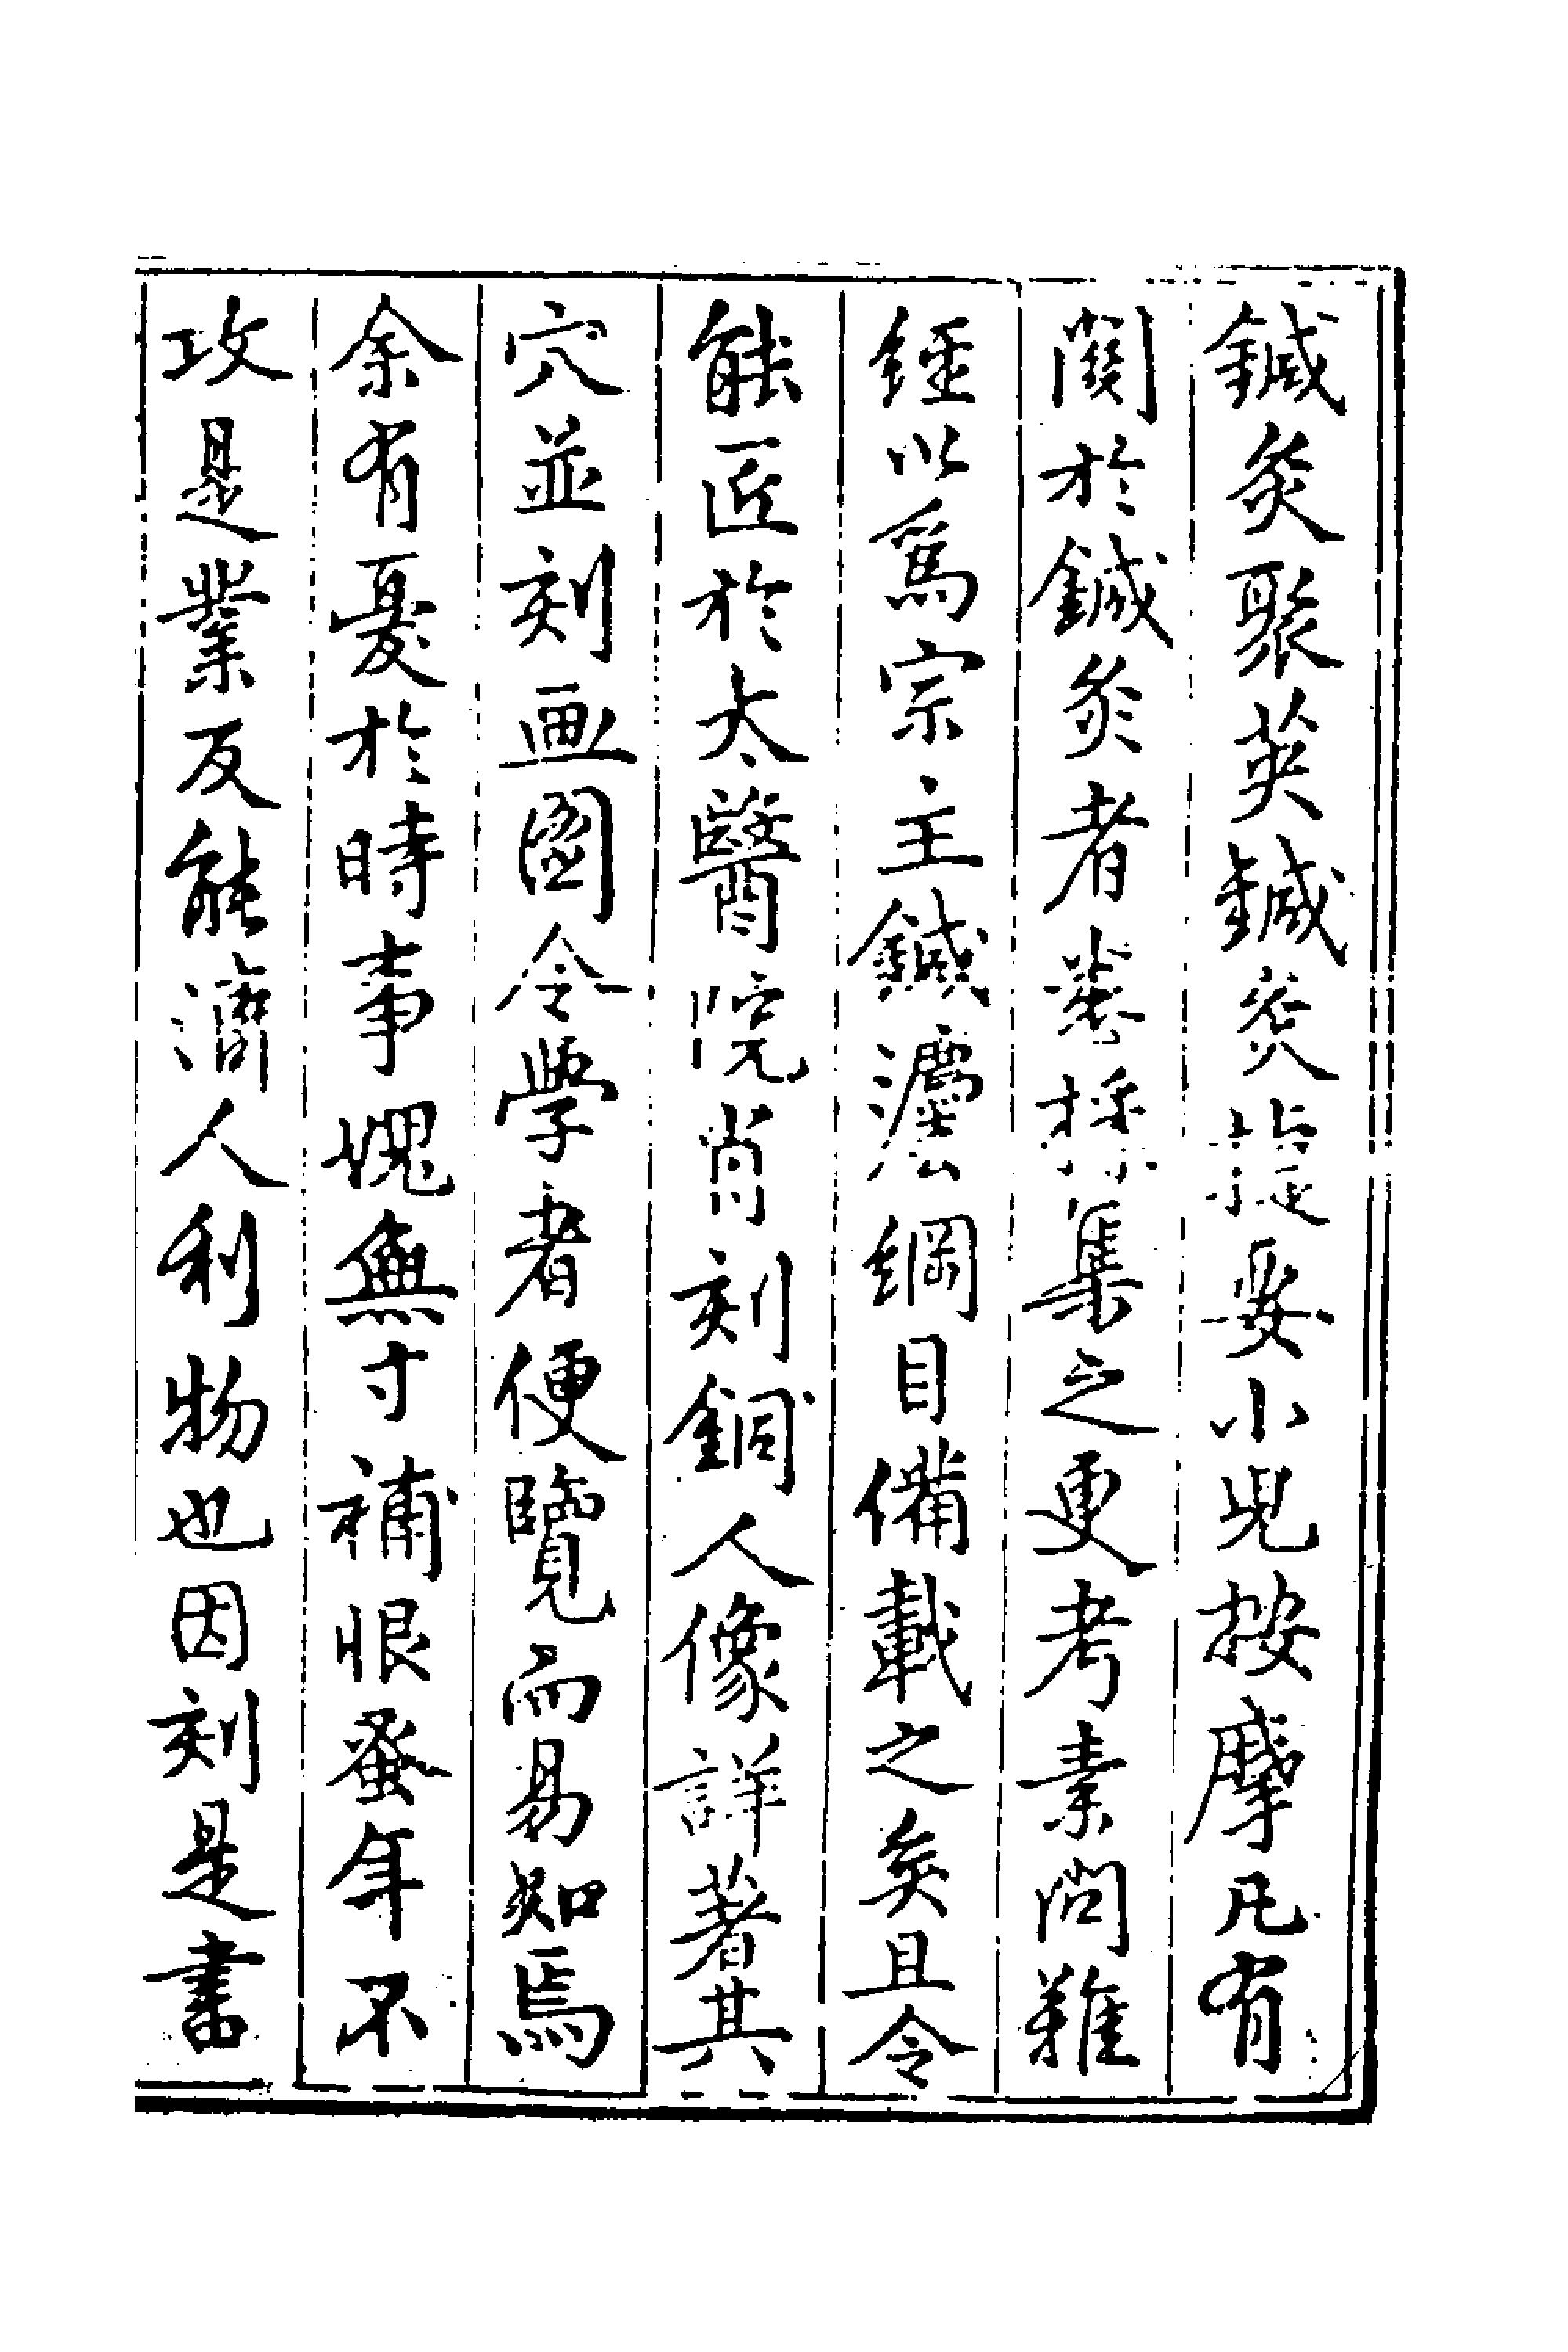 鍼灸聚英鍼灸捷要小兒按摩凡有
関於鍼灸者悉採集之更考素問難
經以爲宗主鍼灋綱目備載之矣且令
能匠於太醫院肖刻銅人像詳著其
穴並刻畫圖令學者便覽而易知焉
余有憂於時事媿無寸補恨蚤年不
攻是業反能濟人利物也因刻是書